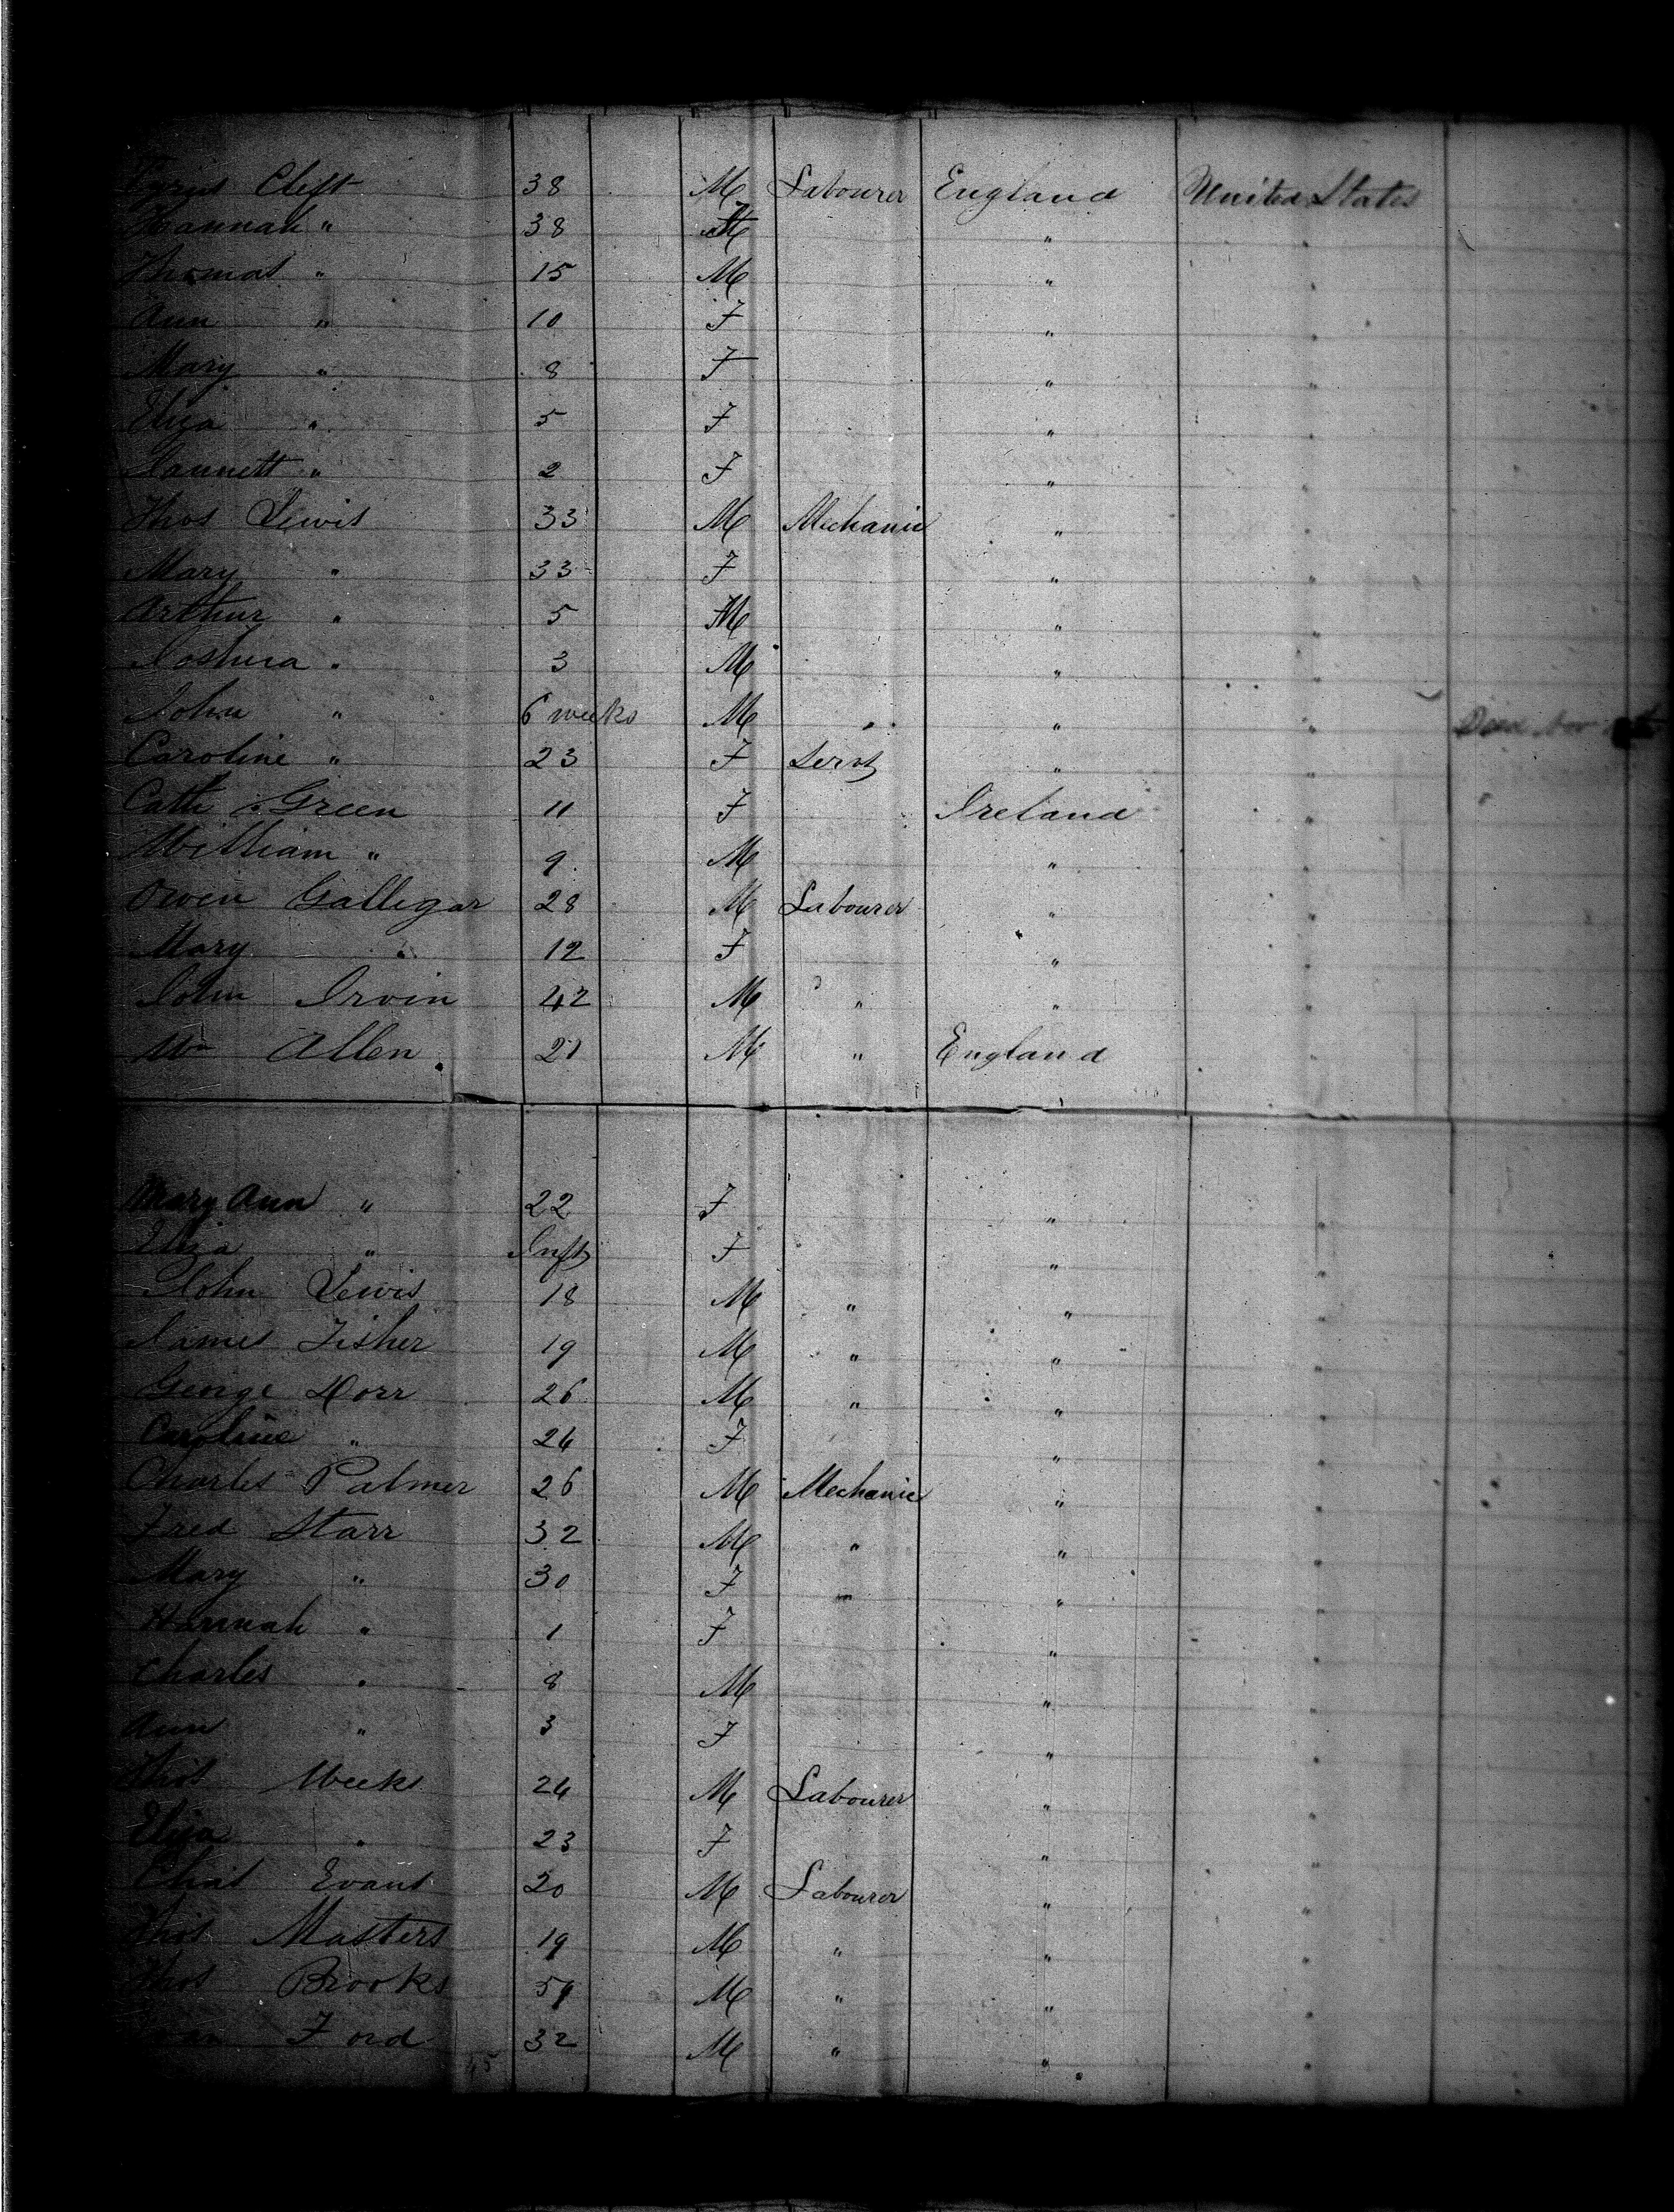 Clift 38 M Labourer England United States
Hannah " 38 " "
Thomas " 15 M " "
Ann " 10 F " "
Mary " 8 F " "
Eliza " 5 F " "
Jannett " 2 F " "
Thos Lewis 33 M Mechanic " "
Mary " 33 F " "
Arthur " 5 M " "
Joshua " 3 M " "
John " 6 weeks M " " " Died
Caroline " 23 F Servt " "
Cath Green 11 F Ireland "
William " 9 M " "
Owen Galligar 28 M Labourer " "
Mary " 12 F " "
John Irvin 42 M " " "
Wm Allen 21 M " England "
Mary Ann " 22 F " "
Eliza " Inft F " "
John Lewis 18 M " " "
James Fisher 19 M " " "
George Dorr 26 M " " "
Caroline " 24 F " "
Charles Palmer 26 M Mechanic " "
Fred Starr 32 M " " "
Mary " 30 F " "
Hannah " 1 F " "
Charles " 8 M " "
Ann " 3 F " "
Thos Weeks 24 M Labourer " "
Eliza " 23 F " "
Chas Evans 20 M Labourer " "
Thos Masters 19 M " " "
Thos Brooks M " " "
Ford 32 M " " "